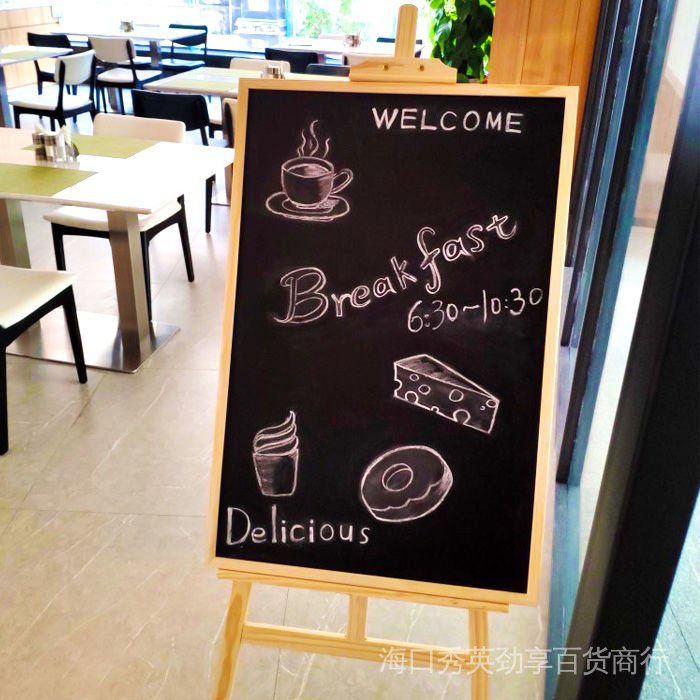 WELCOME
Breakfast
6:30~10:30
Delicious
海口秀英劲享百货商行